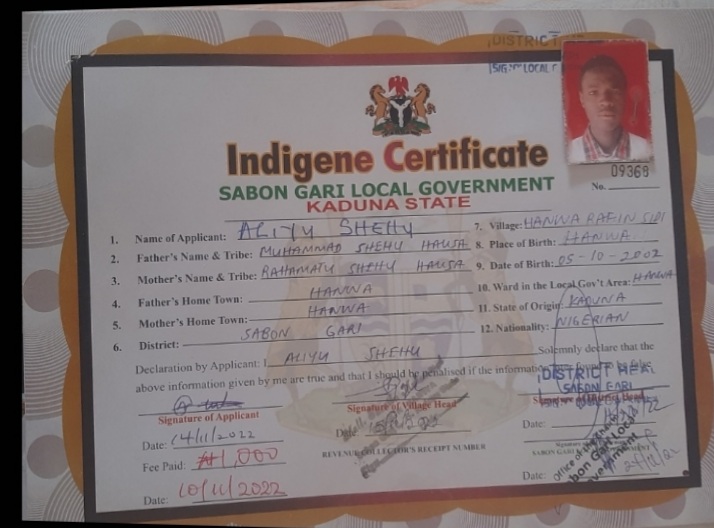 DISTRICT
LOCAL
Indigene Certificate
SABON GARI LOCAL GOVERNMENT
KADUNA STATE
09368
No.
1. Name of Applicant: ALIYU SHEHU
2. Father's Name & Tribe: MUHAMMAD SHEHU HAUSA
3. Mother's Name & Tribe: RAHAMATU SHEHU HAUSA
4. Father's Home Town: HANWA
5. Mother's Home Town: HANWA
6. District: SABON GARI
7. Village: HANWA RAFIN SIDI
8. Place of Birth: HANWA
9. Date of Birth: 05-10-2002
10. Ward in the Local Gov't Area: HANWA
11. State of Origin: KADUNA
12. Nationality: NIGERIAN
Declaration by Applicant: I ALIYU SHEHU Solemnly declare that the
above information given by me are true and that I should be penalised if the information
DISTRICT HEAD
SABON GARI
Signature of Applicant
Signature of Village Head
Signature of District Head
Date: 14/11/2022
Date:
Date:
Fee Paid: ₦1,000
REVENUE COLLECTOR'S RECEIPT NUMBER
Date: 10/11/2022
Date: